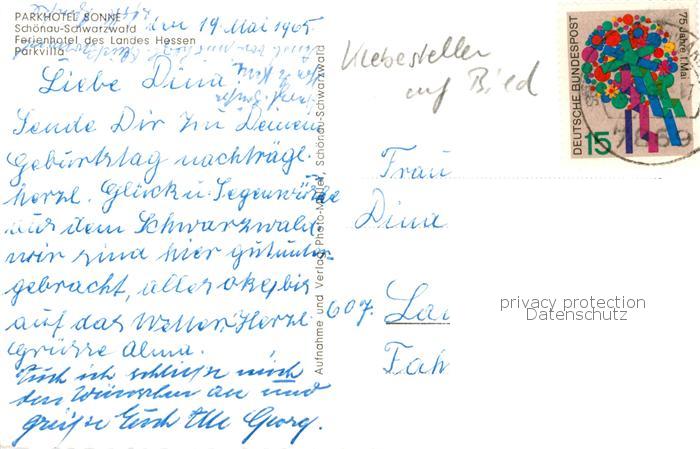 PARKHOTEL SONNE
Schönau-Schwarzwald
Ferienhotel des Landes Hessen
Parkvilla
den 19. Mai 1965
Liebe Dina
Sende Dir zu Deinem
Geburtstag nachträgl.
herzl. Glück u. Segenwünsche
aus dem Schwarzwald
wir sind hier gut unter-
gebracht, alles okey bis
auf das Wetter. Herzl.
Grüsse Alma.
Auch ich schließe mich
den Wünschen an und
grüße Euch Alle Georg.
Aufnahme und Verlag: Photo-Müller, Schönau-Schwarzwald
Klebestellen
auf Bild
DEUTSCHE BUNDESPOST
15
75 Jahre 1. Mai
Frau
Dina
607. Lan
Fah
privacy protection
Datenschutz